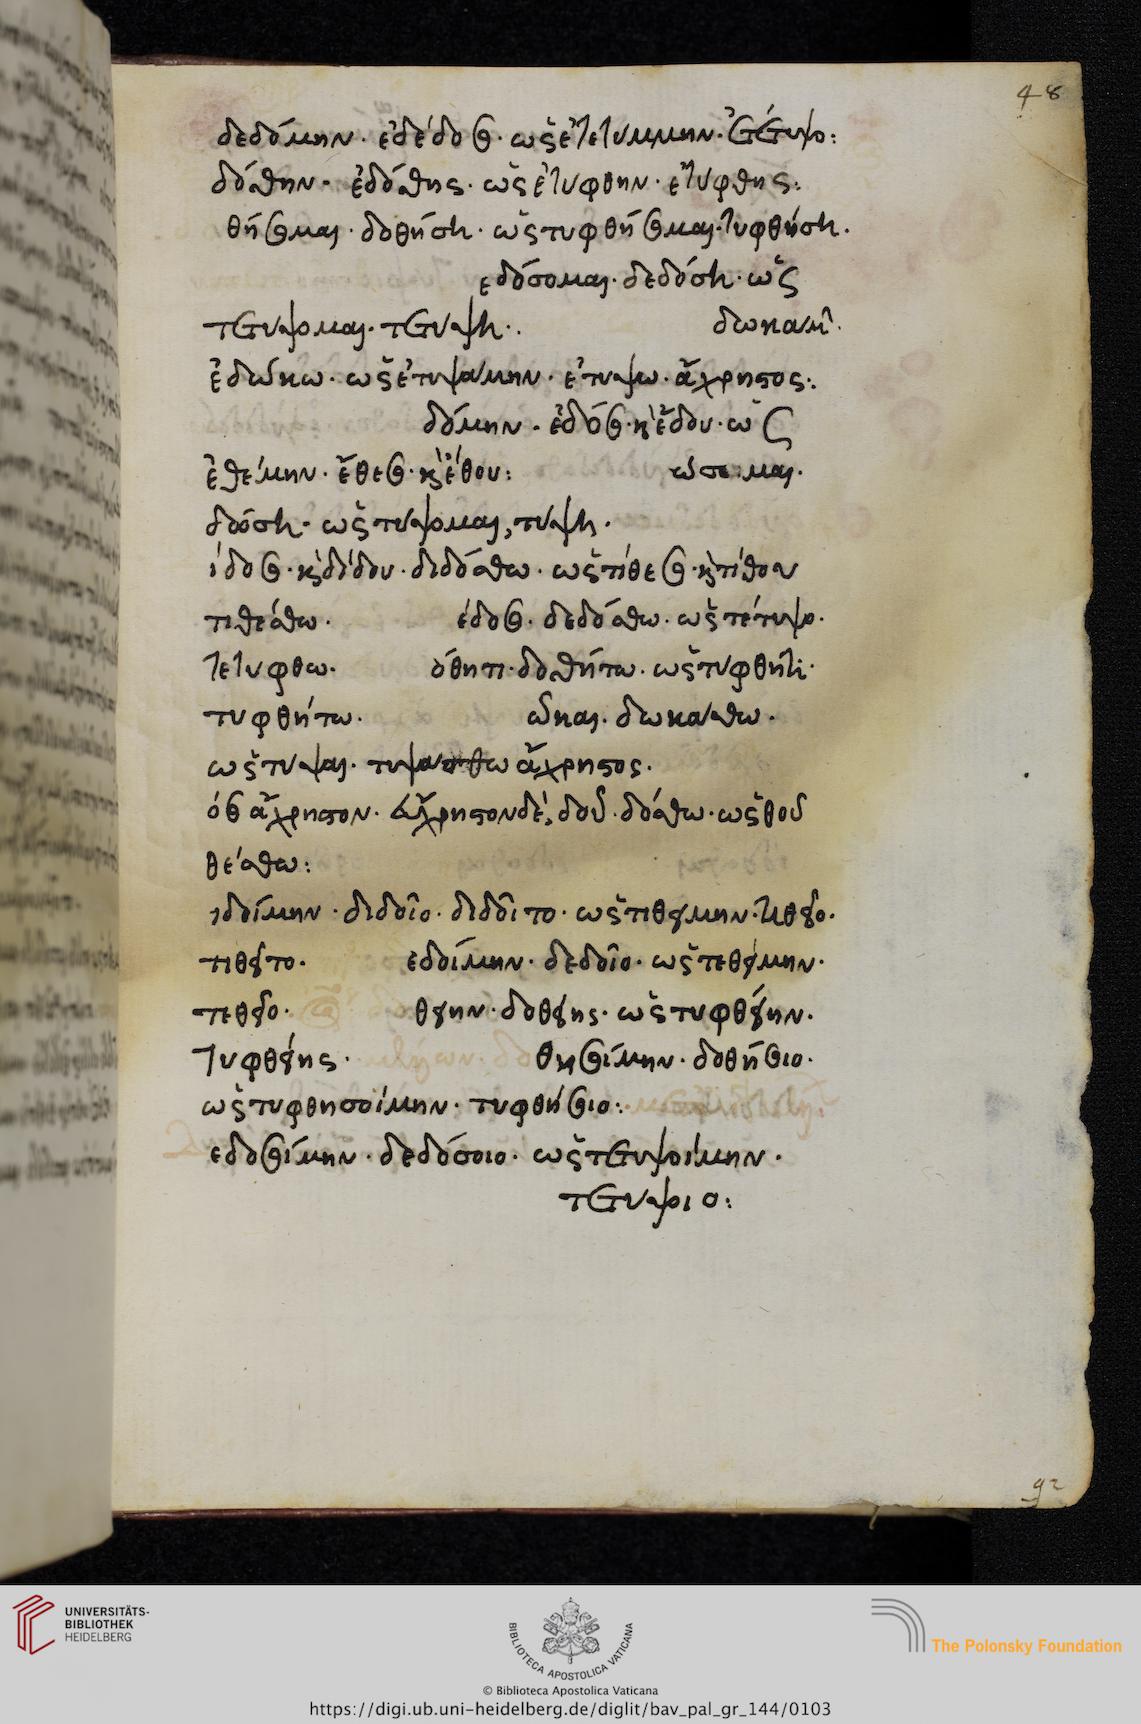 48
δεδόμην · ἐδέδοσο · ὡς ἐτετύμμην · ἐτέτυψο :
δόθην · ἐδόθης · ὡς ἐτύφθην · ἐτύφθης :
θήσομαι · δοθήση · ὡς τυφθήσομαι · τυφθήση ·
εδόσομαι · δεδόση · ὡς
τετύψομαι · τετύψη · δωκάμ ·
ἐδώκω · ὡς ἐτυψάμην · ἐτύψω · ἄχρηστος :
δόμην · ἔδοσο · κ ἔδου · ὡς
ἐθέμην · ἔθεσο · κ ἔθου : ώσομαι ·
δώση · ὡς τύψομαι, τύψη ·
ίδοσο · κ δίδου · διδόσθω · ὡς τίθεσο · κ τίθου
τιθέσθω · έδοσο · δεδόσθω · ὡς τέτυψο ·
τετύφθω · όθητι · δοθήτω · ὡς τύφθητι ·
τυφθήτω · ῶκαι · δωκάσθω ·
ὡς τύψαι · τυψάσθω ἄχρηστος ·
όσο ἄχρηστον · ἄχρηστον δέ, δοῦ · δόσθω · ὡς θοῦ
θέσθω :
ιδοίμην · διδοῖο · διδοῖτο · ὡς τιθείμην · τιθεῖο ·
τιθεῖτο · εδοίμην · δεδοῖο · ὡς τεθείμην ·
τεθεῖο · θείην · δοθείης · ὡς τυφθείην ·
τυφθείης · θησοίμην · δοθήσοιο ·
ὡς τυφθησοίμην · τυφθήσοιο :
εδοσοίμην · δεδόσοιο · ὡς τετυψοίμην ·
τετύψοιο :
92
UNIVERSITÄTS-
BIBLIOTHEK
HEIDELBERG
BIBLIOTECA APOSTOLICA VATICANA
The Polonsky Foundation
© Biblioteca Apostolica Vaticana
https://digi.ub.uni-heidelberg.de/diglit/bav_pal_gr_144/0103